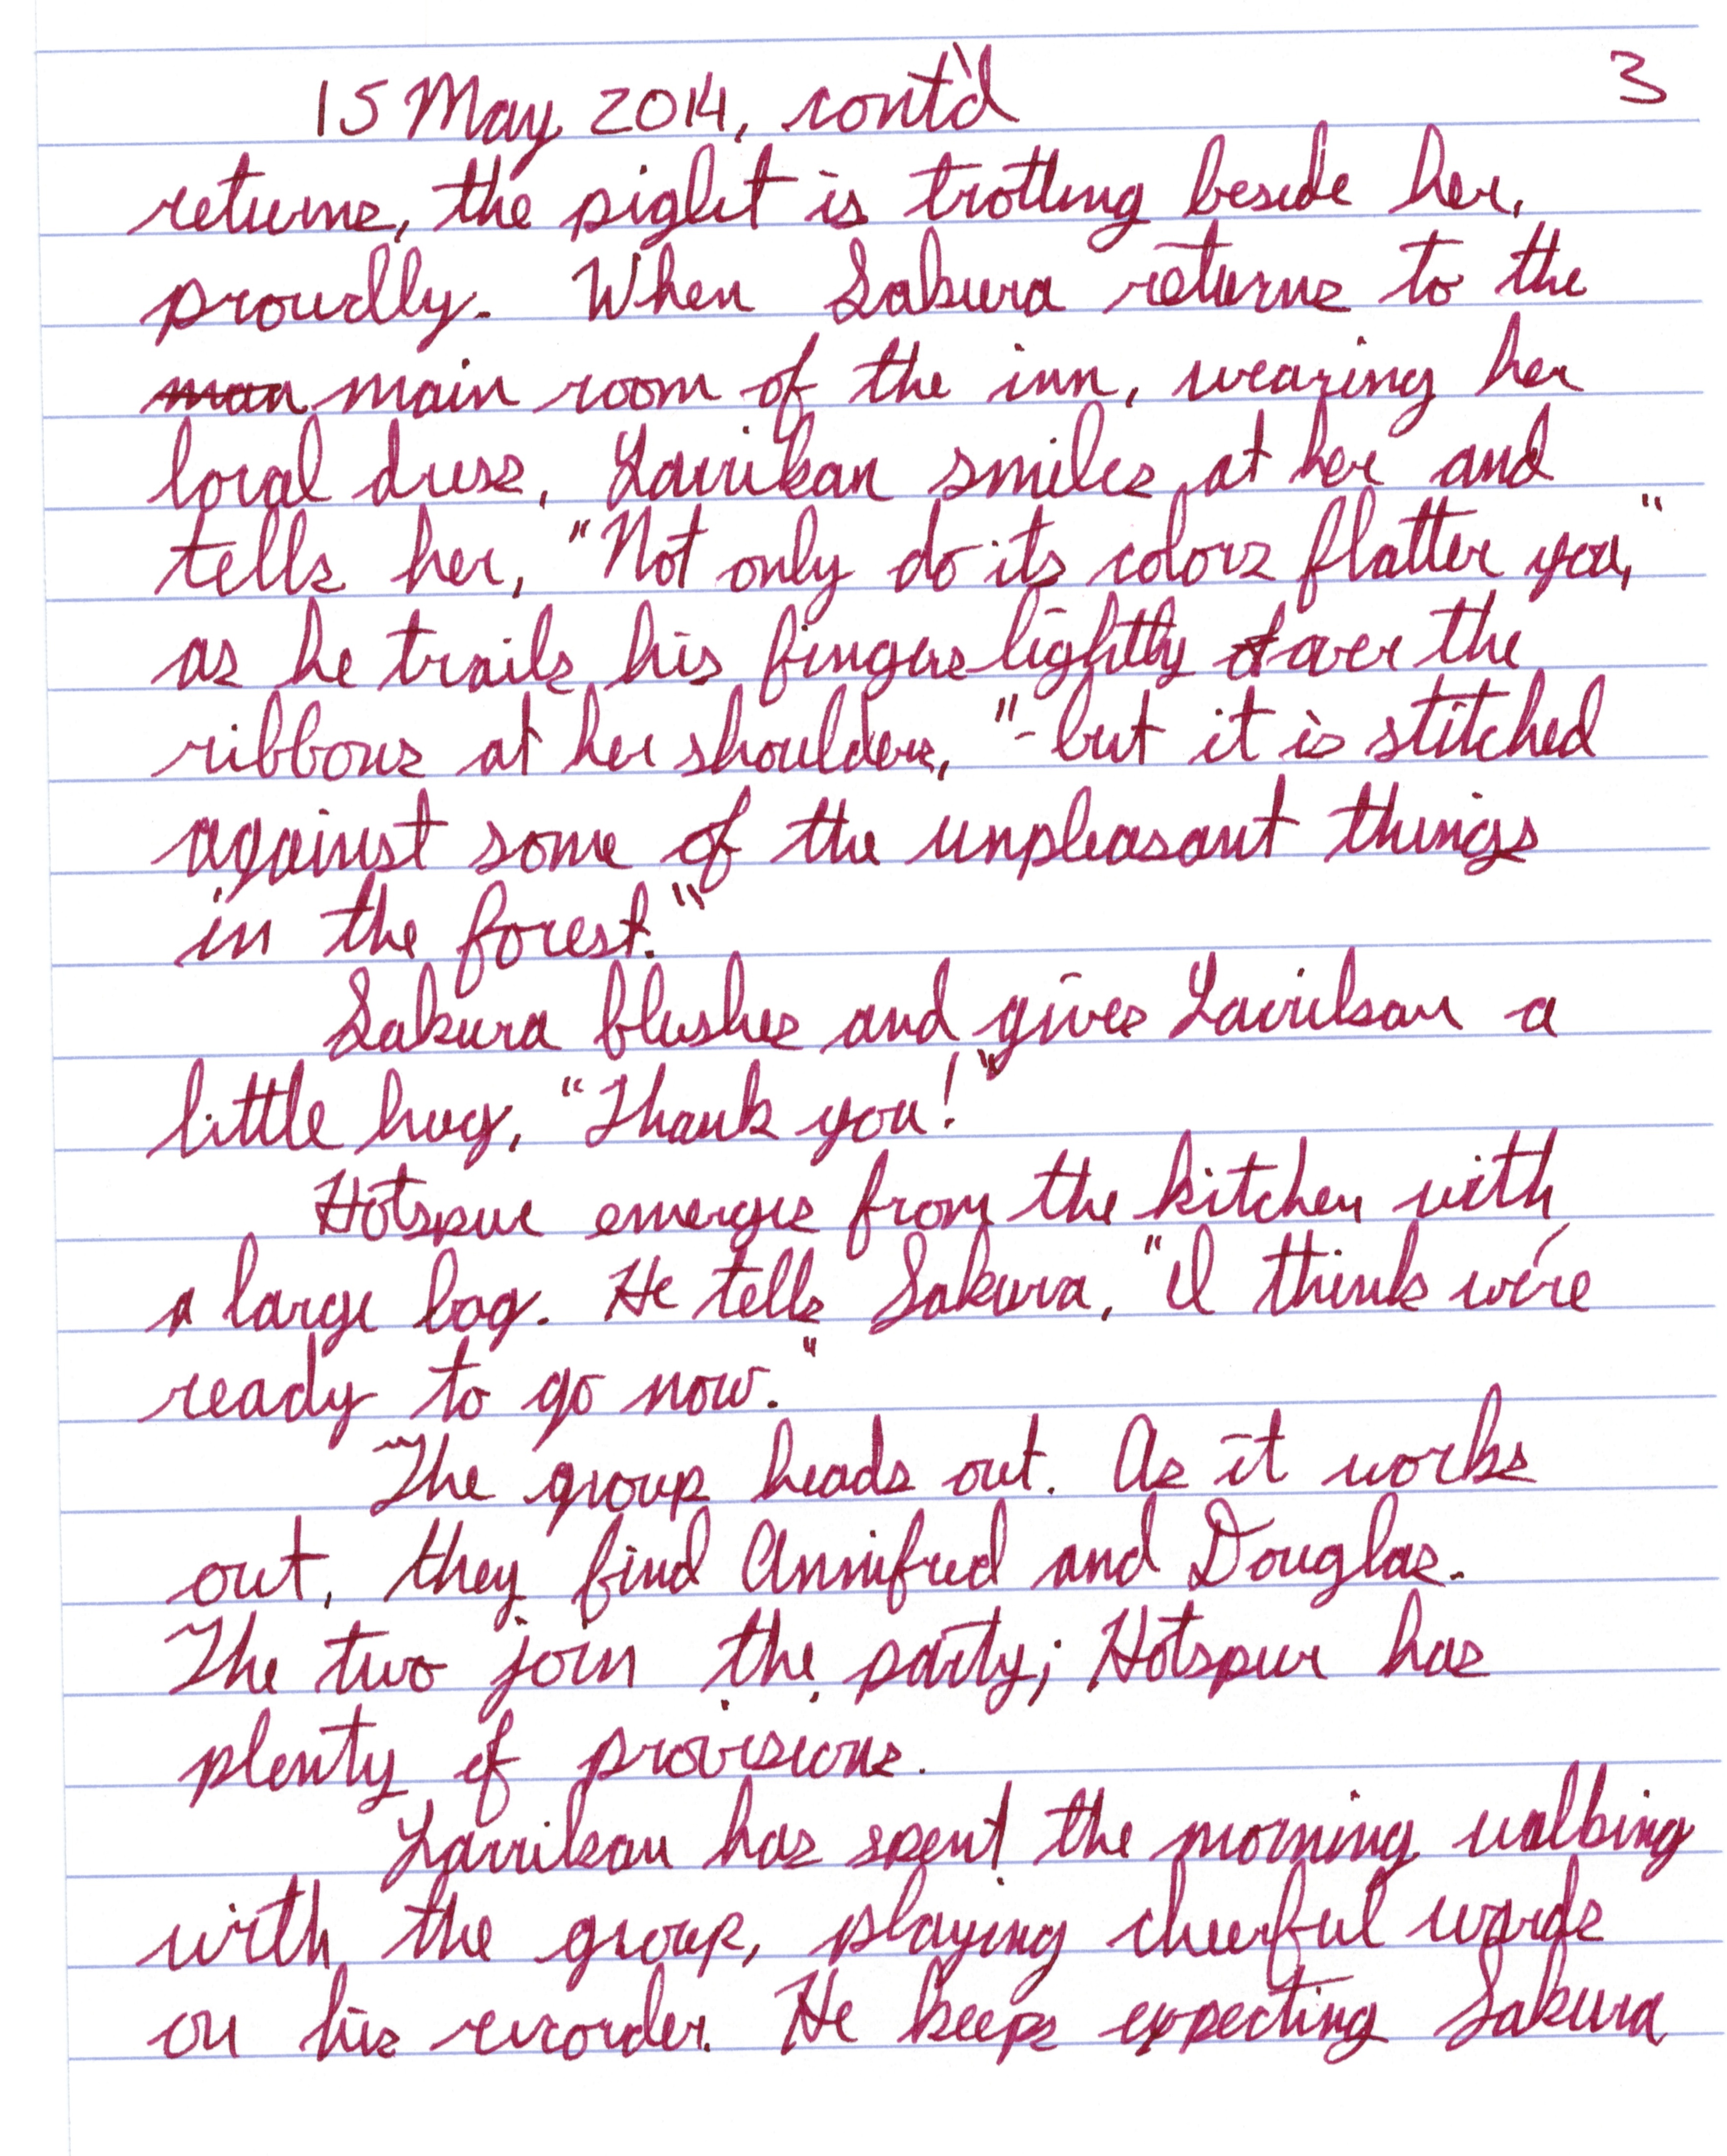 15 May 2014, cont'd 3
returns, the piglet is trotting beside her,
proudly. When Sakura returns to the
man main room of the inn, wearing her
local dress, Larrikan smiles at her and
tells her, "Not only do its colors flatter you,"
as he trails his fingers lightly over the
ribbons at her shoulders, "-but it is stitched
against some of the unpleasant things
in the forest."
Sakura blushes and gives Larrikan a
little hug, "Thank you!"
Hotspur emerges from the kitchen with
a large bag. He tells Sakura, "I think we're
ready to go now."
The group heads out. As it works
out, they find Annifred and Douglas.
The two join the party; Hotspur has
plenty of provisions.
Larrikan has spent the morning walking
with the group, playing cheerful words
on his recorder. He keeps expecting Sakura